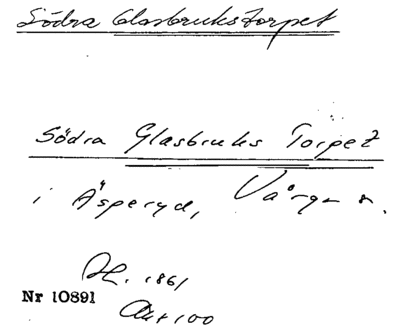 Södra Glasbrukstorpet
Södra Glasbruks Torpet
i Äsperyd, Vårgn s.
Hl. 1861
Nr 10891
Akt 100